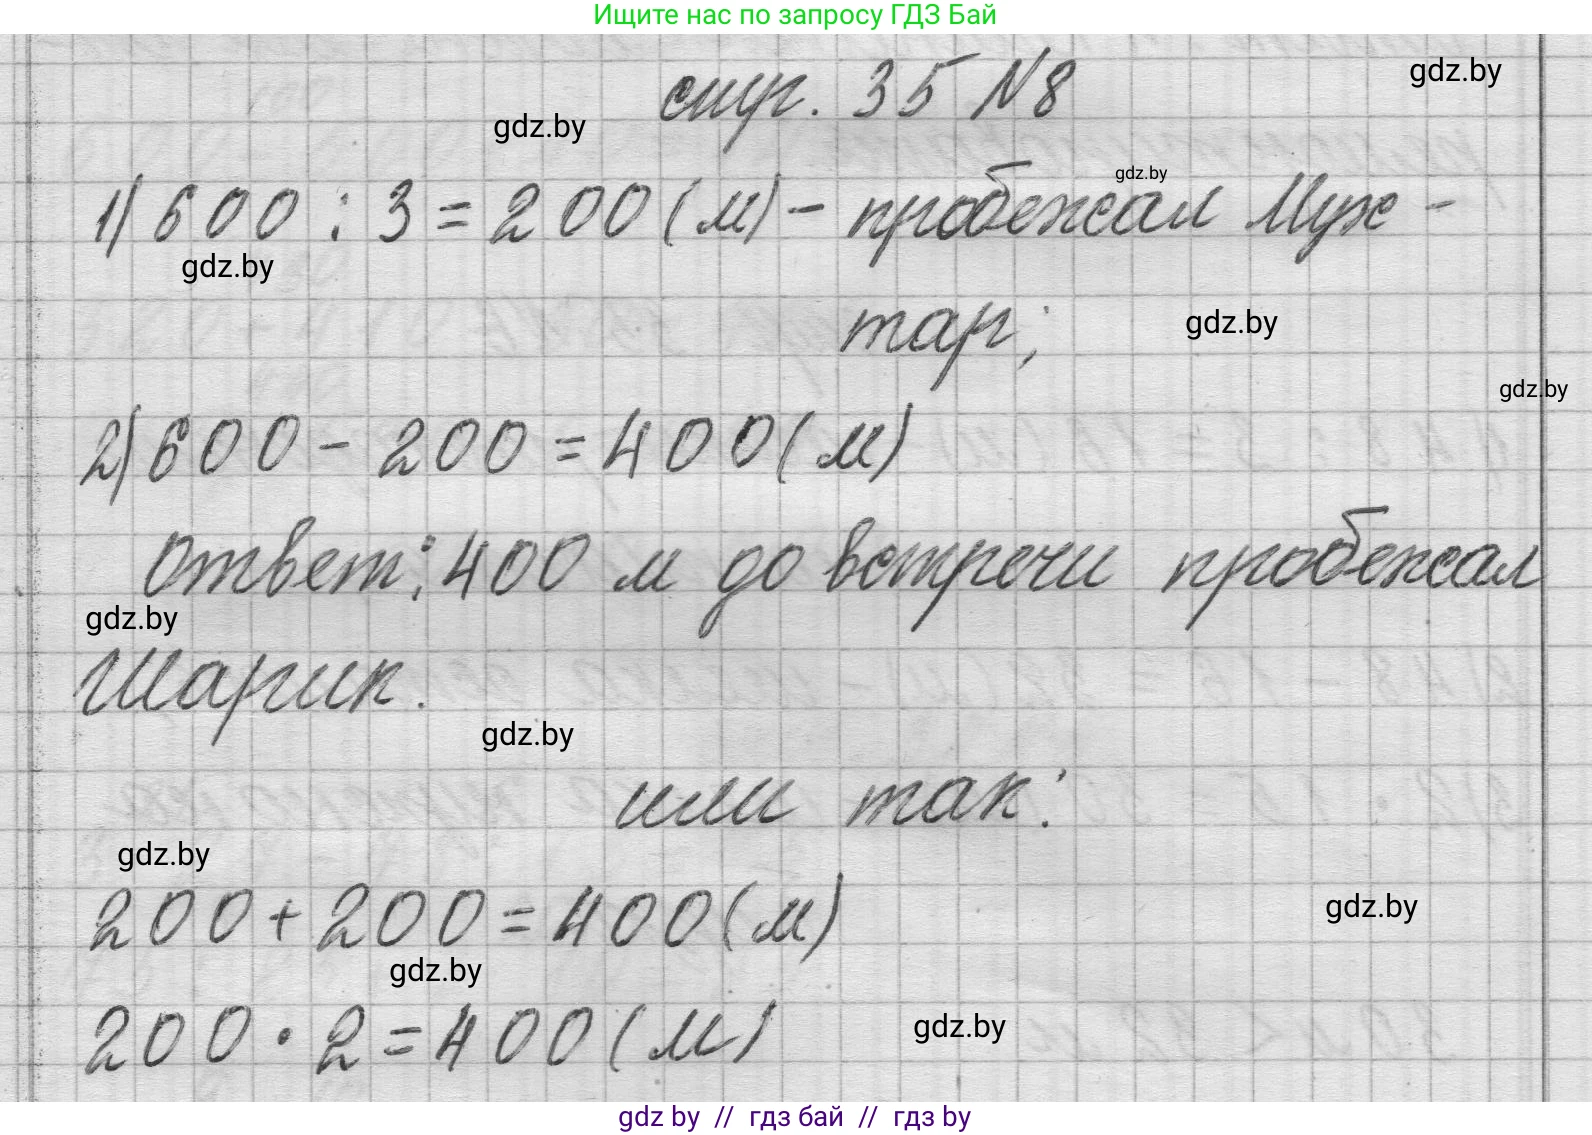 Ищите нас по запросу ГДЗ Бай
gdz.by
стр. 35 N8
gdz.by
gdz.by
1) 600 : 3 = 200 (м) - пробежал Мух -
gdz.by
тар;
gdz.by
gdz.by
2) 600 - 200 = 400 (м)
Ответ: 400 м до встречи пробежал
gdz.by
Шарик.
gdz.by
или так:
gdz.by
200 + 200 = 400 (м)
gdz.by
gdz.by
200 · 2 = 400 (м)
gdz.by
gdz by // гдз бай // гдз by